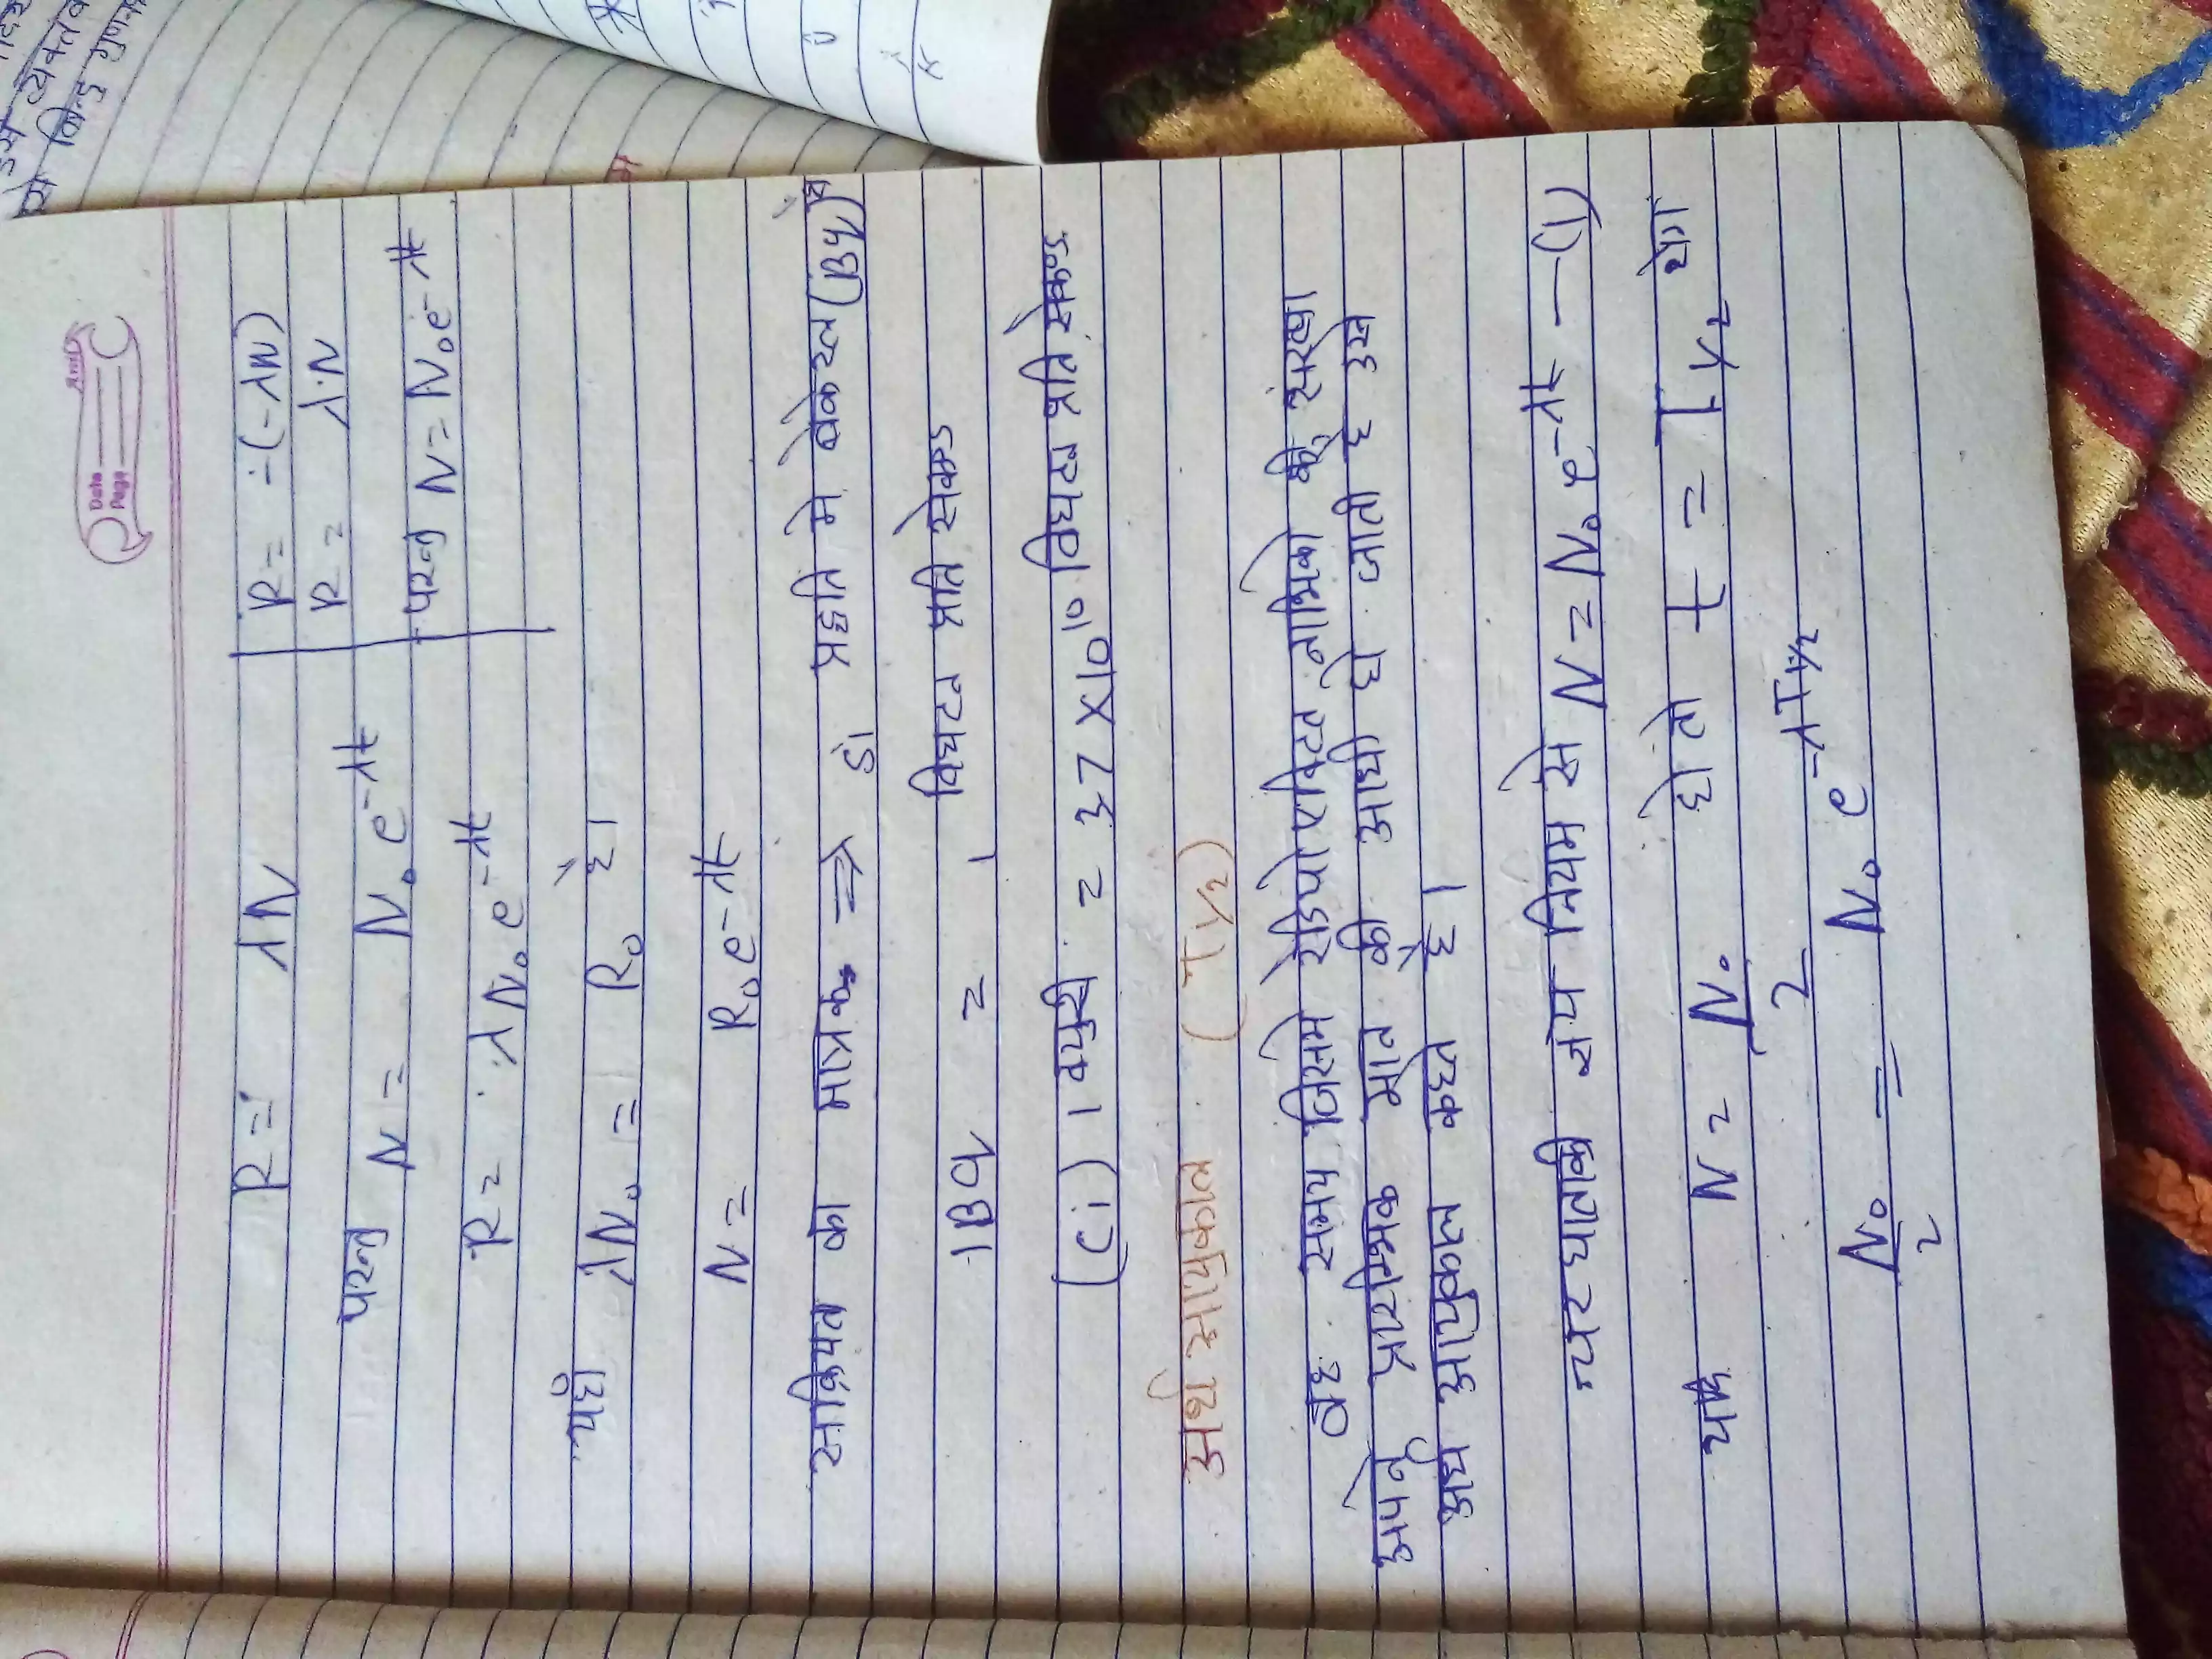 Date
Page
R = λN
R = -(-λN)
R = λN
परन्तु N = N₀e^-λt
परन्तु N = N₀e^-λt
R = λN₀e^-λt
यहाँ λN₀ = R₀ है।
N = R₀e^-λt
साक्रियता का मात्रक ⇒ SI प्रद्दति मे बेकेरल (Bq) है
1Bq = 1 विघटन प्रति सेकण्ड
(Ci) 1 क्युरी = 37 X10¹⁰ विघटन प्रति सेकण्ड
अर्ध आयुकाल (T1/2)
वह समय जिसमे रेडियो एक्टिव नाभिको की संख्या
अपने प्रारम्भिक मान की आधी हो जाती है उसे
अर्ध आयुकाल कहते है।
चर घातांकी क्षय नियम से N = N₀e^-λt —(1)
यदि N = N₀/2 हो तो t = T1/2 होगा
N₀/2 = N₀e^-λT1/2